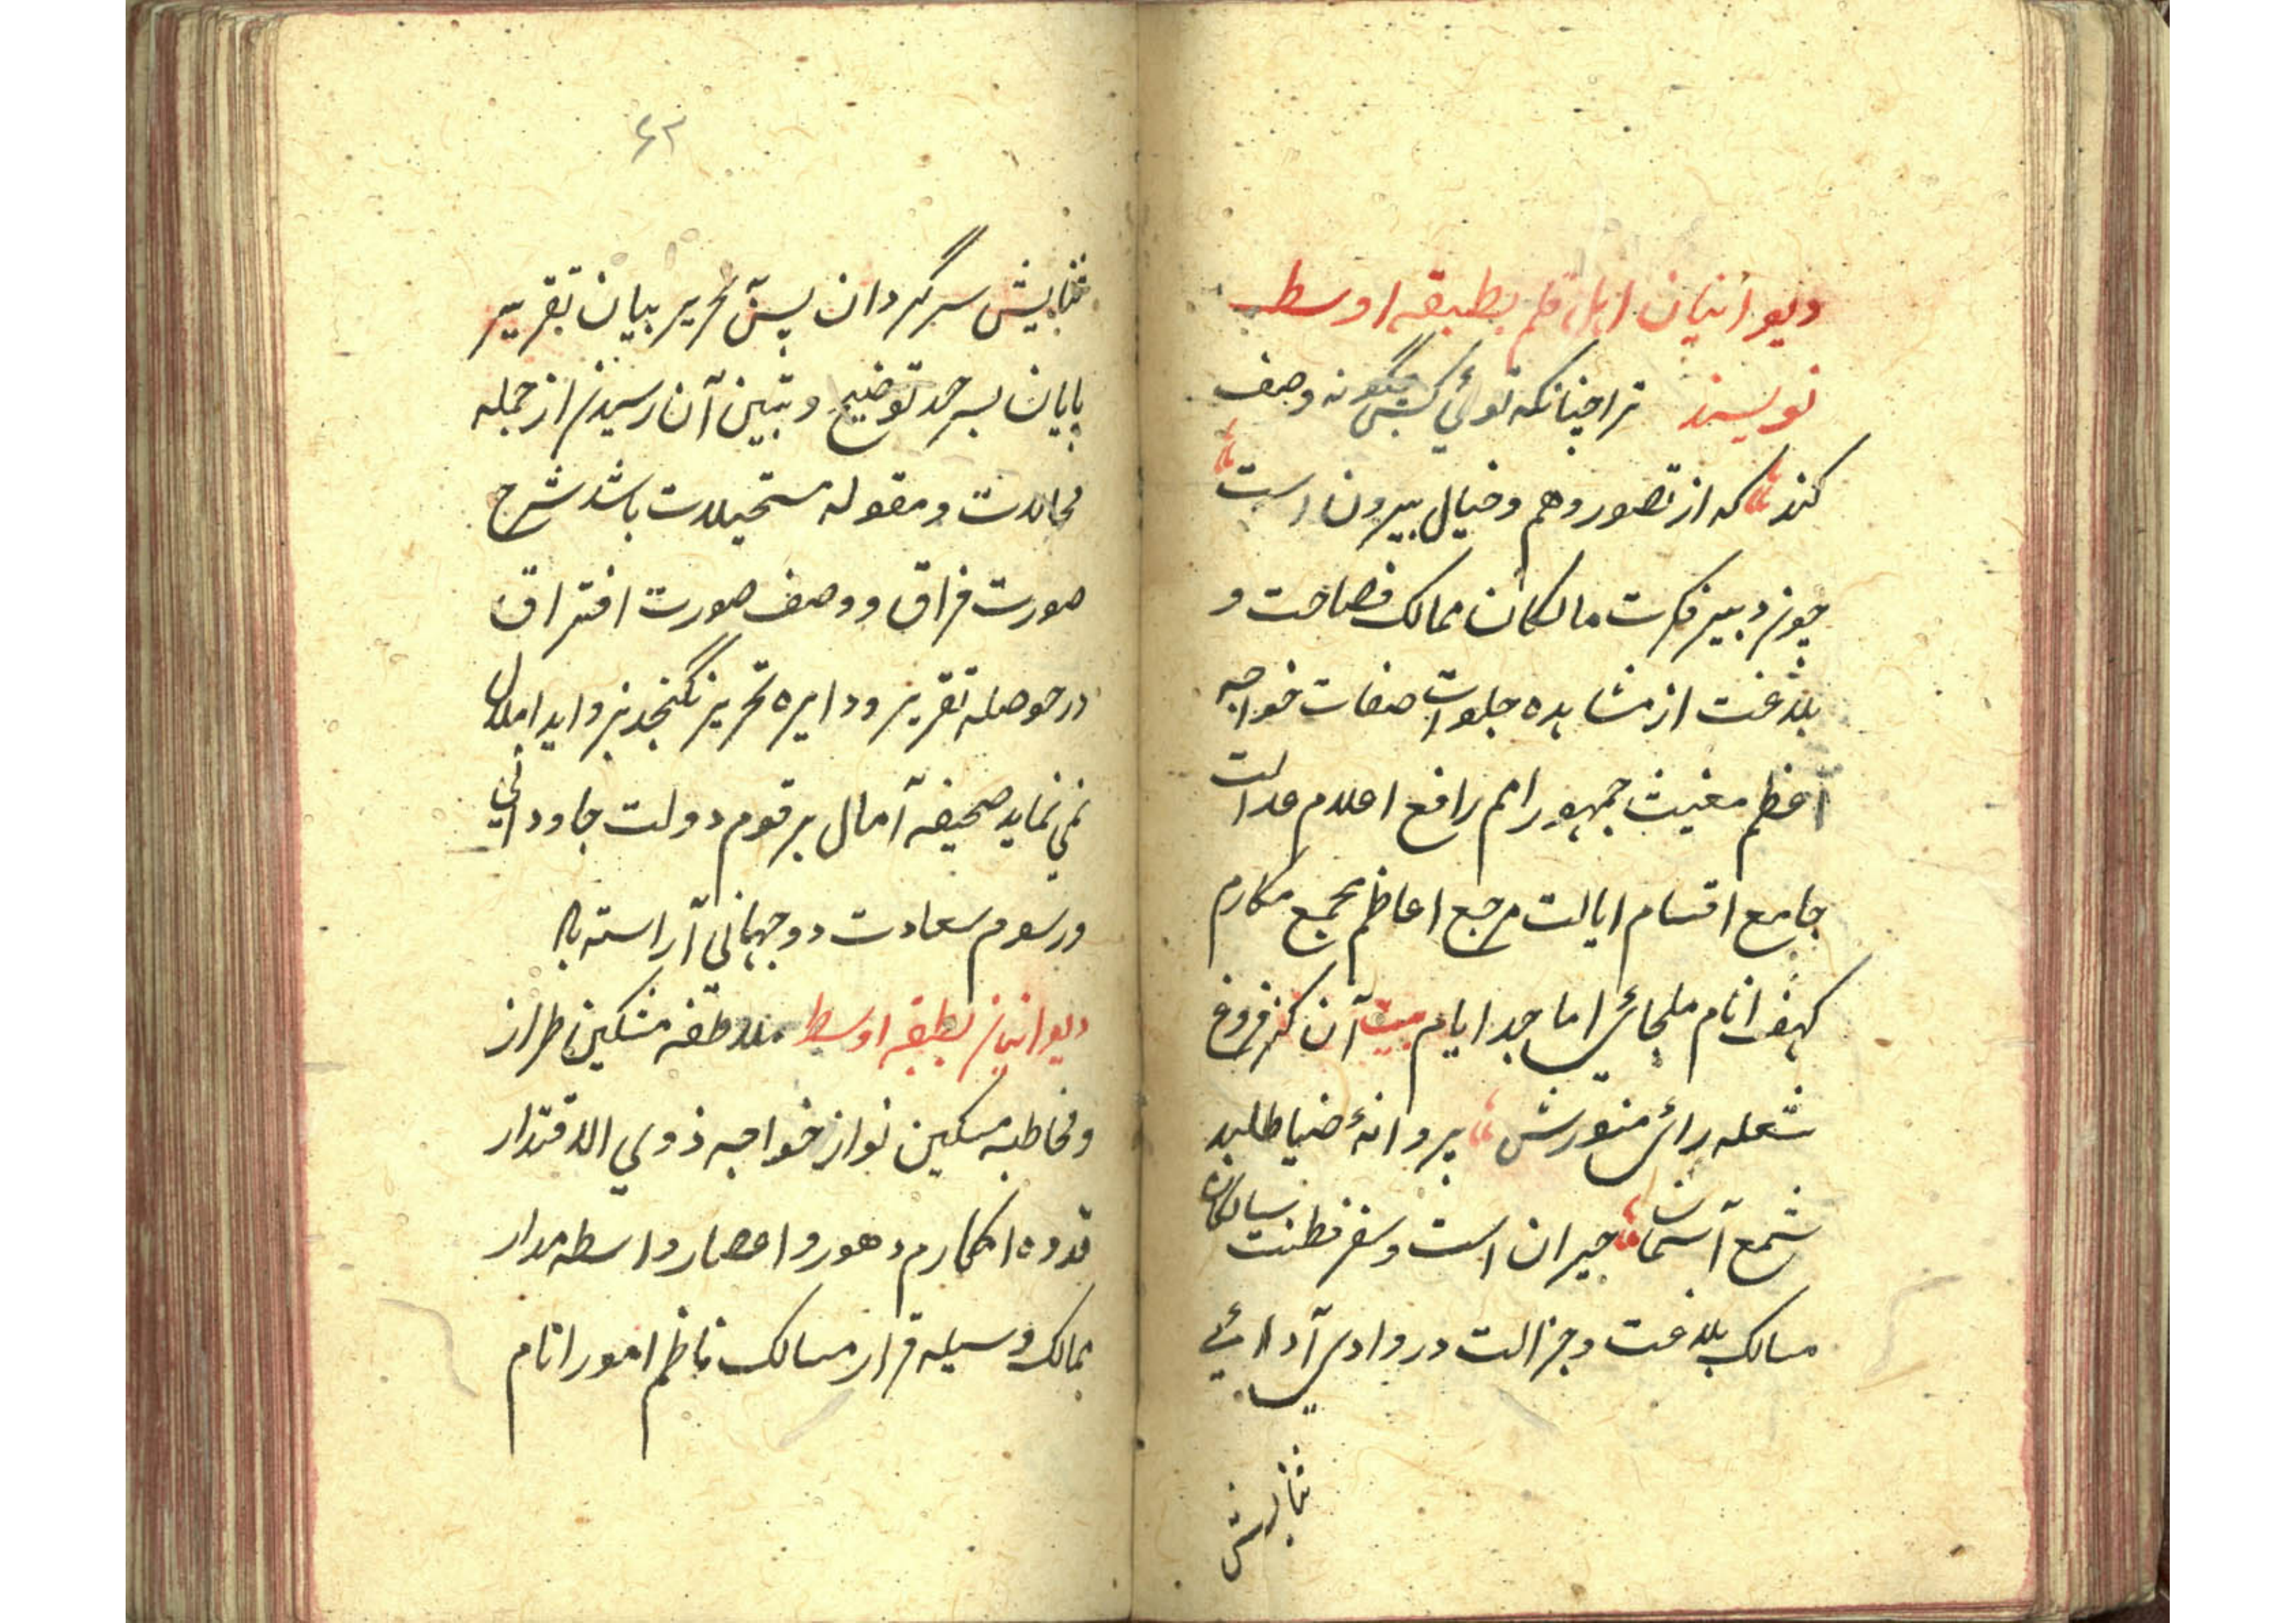 دیوانیان اهل قلم بطبقه اوسط
نویسند ترا چنانکه توئی کس چگونه وصف
کند که از تصور وهم و خیال بیرون است
چون دبیر فکرت مالکان ممالک فصاحت و
بلاغت از مشاهده جلوات صفات خواجه
اعظم مغیث جمهور امم رافع اعلام عدالت
جامع اقسام ایالت مرجع اعاظم مجمع مکارم
کهف انام ملجائی اماجد ایام بیت آن کز فروغ
شعله رائی منورش پروانهٔ ضیا طلبد
شمع آسمان حیران است و سفر فطنت سالکان
مسالک بلاغت و جزالت در وادی آدائی
ثنایش
۶۳
ثنایش سرگردان پس تحریر بیان تقریر
پایان بسرحد توضیح و تبیین آن رسیدن از جمله
محالات و مقوله مستحیلات باشد شرح
صورت فراق و وصف صورت افتراق
در حوصله تقریر و دایره تحریر نگنجد بزواید املال
نمی نماید صحیفه آمال برقوم دولت جاودانی
و رسوم سعادت دوجهانی آراسته باد
دیوانیان بطبقه اوسط ملاطفه مشکین طراز
و مخاطبه مسکین نواز خواجه ذوی الاقتدار
قدوه اکارم دهور و اعصار واسطه مدار
ممالک وسیله قرار مسالک ناظم امور انام